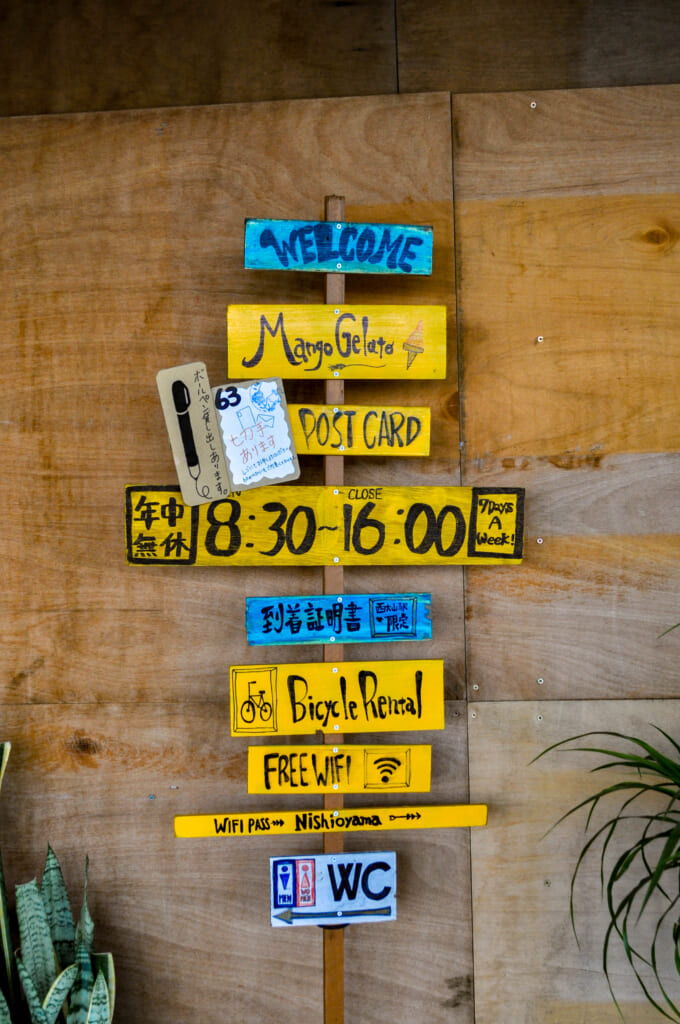 WELCOME
Mango Gelato
ボールペン貸し出しあります。
63
切手
あります
POST CARD
CLOSE
年中
無休
8:30~16:00
7 DAYS
A
Week!
到着証明書
西大山駅
限定
Bicycle Rental
FREE WIFI
WIFI PASS Nishioyama
MEN
WO
MEN
WC